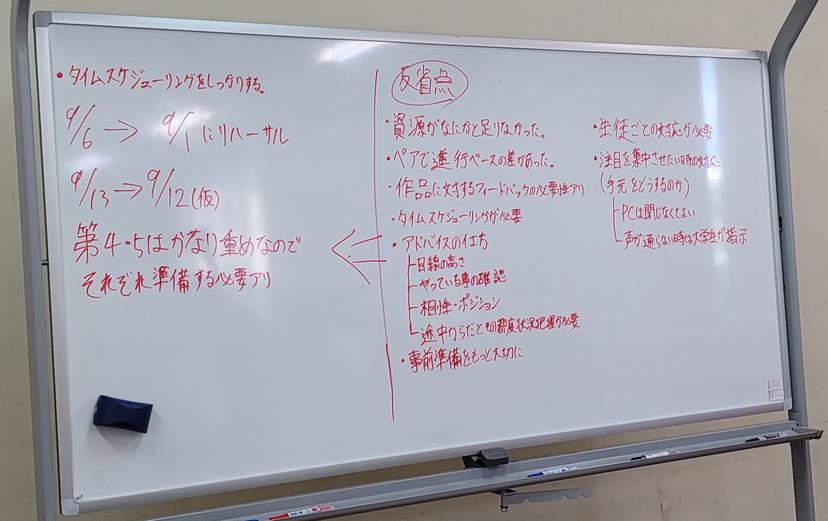 ・タイムスケジューリングをしっかりする。
9/6 → 9/1にリハーサル
9/13→9/12(仮)
第4・5はかなり重めなので
それぞれ準備する必要アリ
反省点
・資源がなにかと足りなかった。
・ペアで進行ペースの差があった。
・作品に対するフィードバックの必要性アリ
・タイムスケジューリングが必要
・アドバイスの仕方
目線の高さ
やっている事の確認
相性・ポジション
途中からだとその都度状況把握が必要
・事前準備をもっと大切に
・生徒ごとの対応が必要
・注目を集中させたい時の対応
(手元をどうするのか)
PCは閉じなくてよい
声が通らない時は大学生が指示